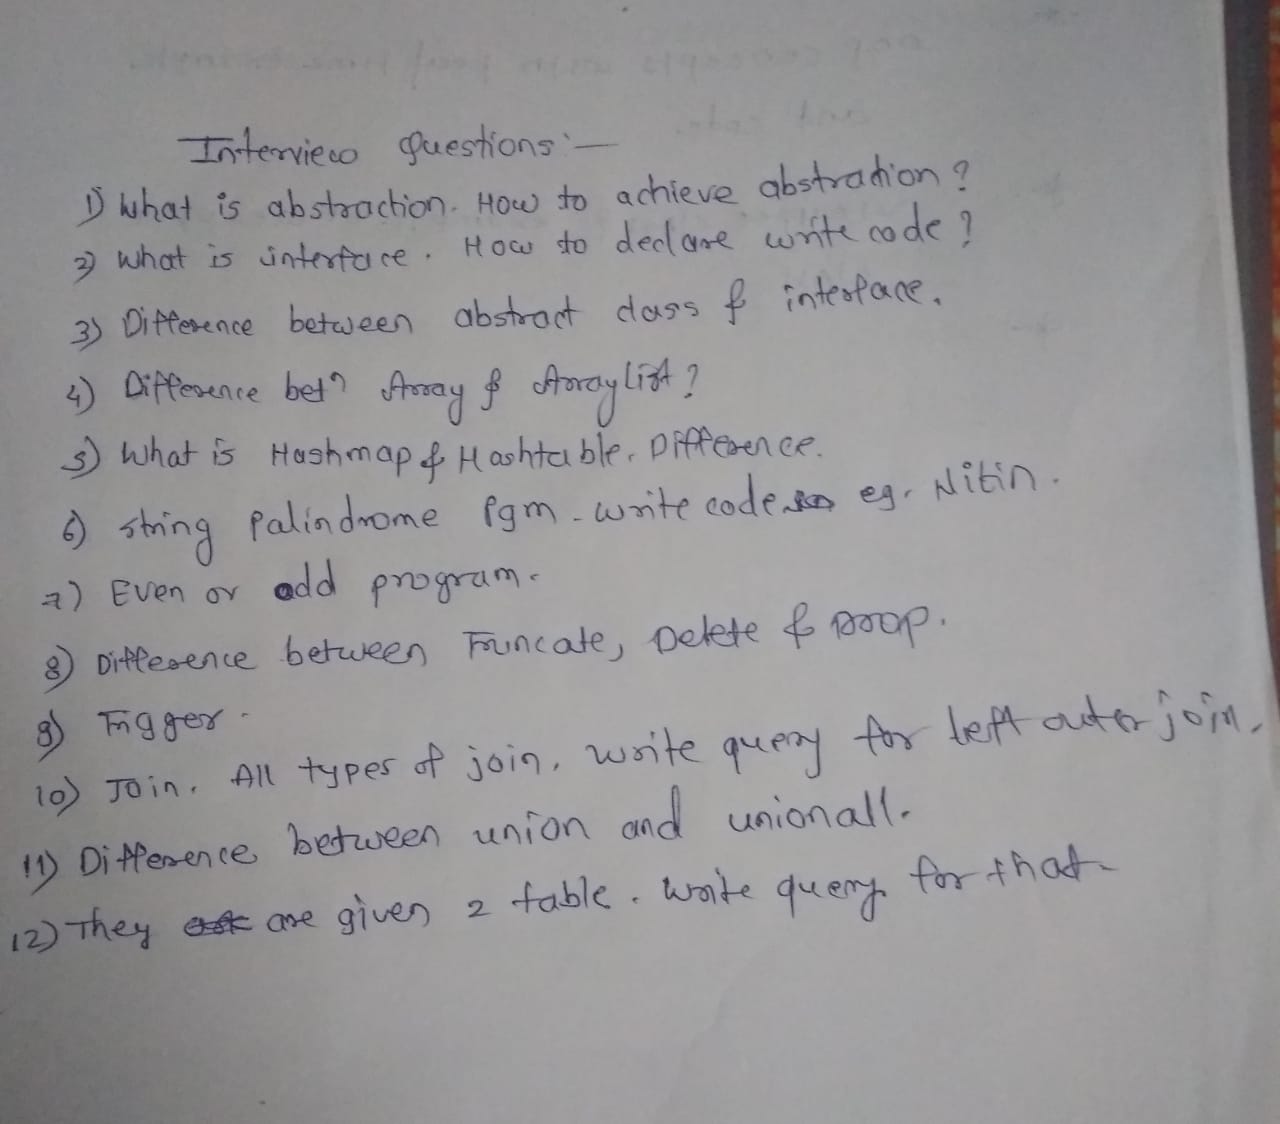 Interview Questions :-
1) What is abstraction. How to achieve abstraction?
2) What is interface. How to declare write code?
3) Difference between abstract class & interface.
4) Difference betn Array & Arraylist?
5) What is Hashmap & Hashtable. Difference.
6) string Palindrome Pgm - write code eg. Nitin.
7) Even or odd program.
8) Difference between Truncate, Delete & Drop.
9) Trigger.
10) Join. All types of join. write query for left outer join.
11) Difference between union and unionall.
12) They are given 2 table. Write query for that.